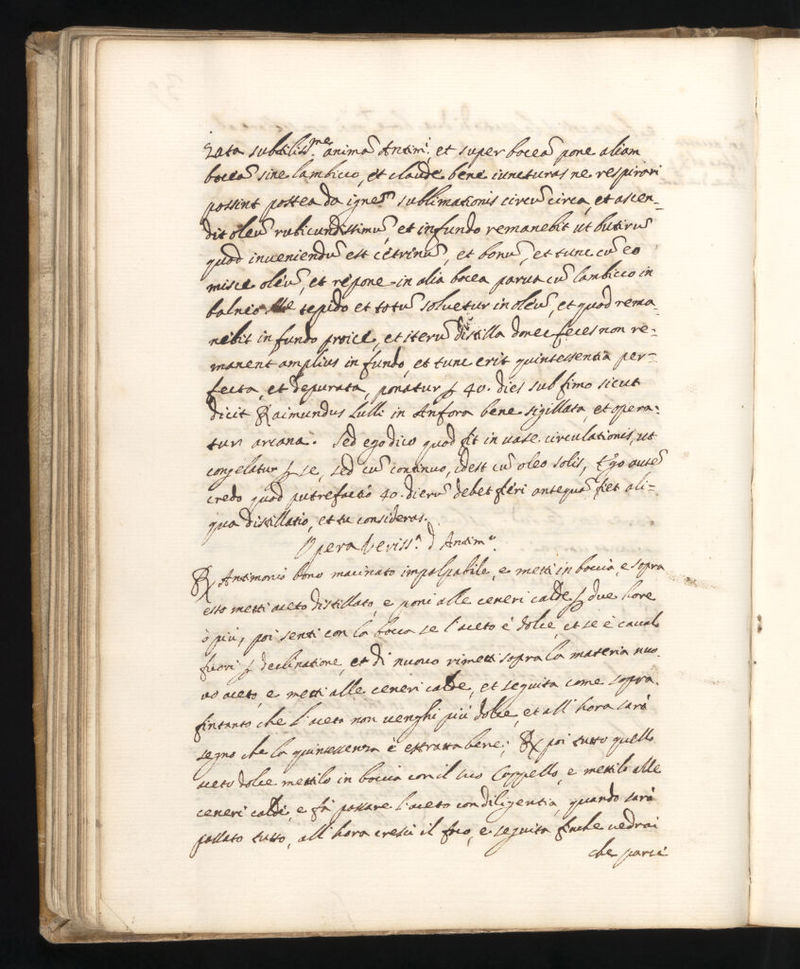 zata subtiliss.me animã Antim.i, et super boceã pone aliam
boceã sine lambicco, et claude bene iuncturas ne respirari
possint postea da igneõ sublimationis circũ circa, et ascen=
dit oleũ rubicundissimũ, et in fundo remanebit ut butirũ
quod inveniendũ est citrinũ, et bonũ, et tunc cũ eo
misce oleũ, et repone in alia bocea parva cũ lambicco in
balneo tepido et totũ solvetur in oleũ, et quod rema=
nebit in fundo proice, et iterũ distilla donec feces non re=
manent amplius in fundo, et tunc erit quintessentia per=
fecta, et depurata, ponatur p 40. dies sub fimo sicut
dicit Raimundus Lulli in Anfora bene sigillata, et opera=
tur arcana. Sed ego dico quod fit in vase circulationis, ut
congelatur p se, sed cũ continuo, idest cũ oleo solis, Ego autẽ
credo quod putrefactio 40. dierũ debet fieri antequã fiet ali=
qua distillatio, et tu consideras.
Opera veriss.a d Antim.o
℞ Antimonio bono macinato impalpabile, e metti in boccia, e sopra
esso metti aceto distillato, e poni alle ceneri calde p due hore
ò più, poi senti con la bocca se l'aceto è dolce, et se è cavalo
fuori p declinatione, et di nuovo rimetti sopra la materia nuo=
vo aceto, e metti alle ceneri calde, et seguita come sopra
fintanto che l'aceto non venghi più dolce, et all'hora sarà
segno che la quintessenza è estratta bene; ℞ poi tutto quello
aceto dolce mettilo in boccia con il suo Cappello, e mettilo alle
ceneri calde, e fà passare l'aceto con diligentia, quando sarà
passato tutto, all'hora cresci il foco, e seguita finche vedrai
che